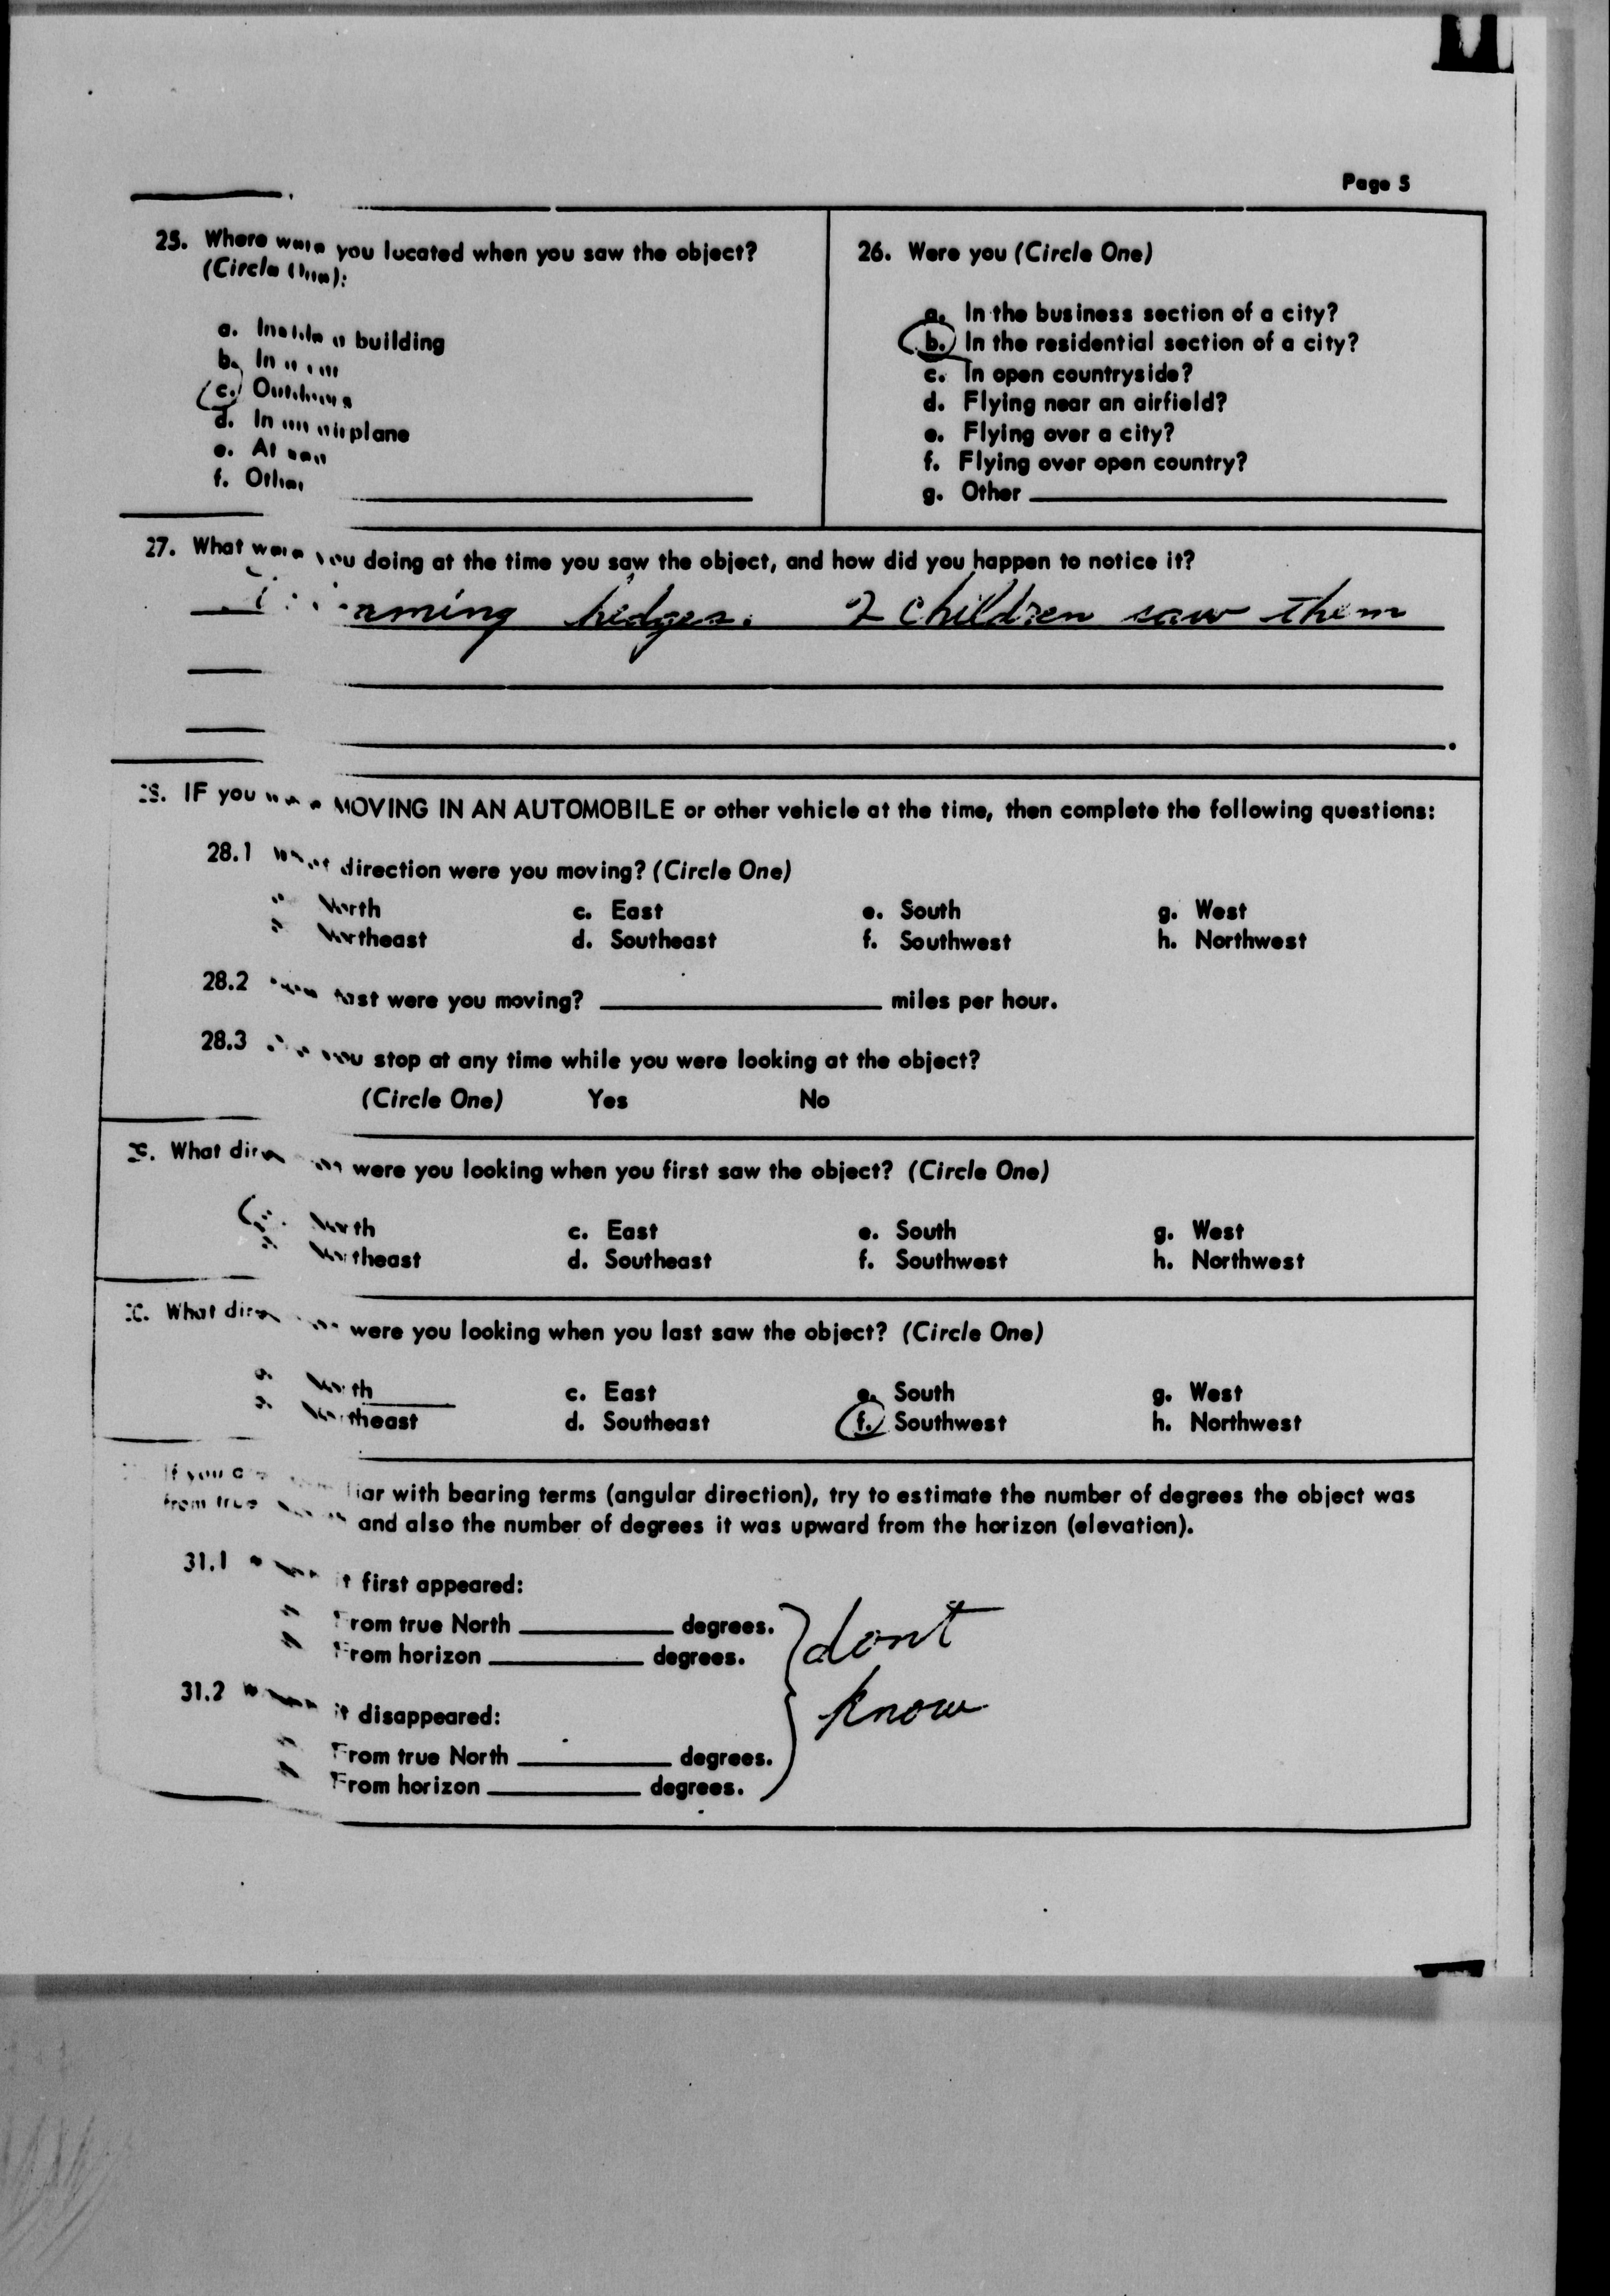 Page 5
25. Where were you located when you saw the object?
(Circle One):
a. Inside a building
b. In a car
c. Outdoors
d. In an airplane
e. At sea
f. Other
26. Were you (Circle One)
a. In the business section of a city?
b. In the residential section of a city?
c. In open countryside?
d. Flying near an airfield?
e. Flying over a city?
f. Flying over open country?
g. Other
27. What were you doing at the time you saw the object, and how did you happen to notice it?
hedges. 2 children saw them
28. IF you were MOVING IN AN AUTOMOBILE or other vehicle at the time, then complete the following questions:
28.1 What direction were you moving? (Circle One)
North c. East e. South g. West
Northeast d. Southeast f. Southwest h. Northwest
28.2 How fast were you moving? miles per hour.
28.3 Did you stop at any time while you were looking at the object?
(Circle One) Yes No
What direction were you looking when you first saw the object? (Circle One)
North c. East e. South g. West
Northeast d. Southeast f. Southwest h. Northwest
What direction were you looking when you last saw the object? (Circle One)
a. North c. East e. South g. West
Northeast d. Southeast f. Southwest h. Northwest
If you are familiar with bearing terms (angular direction), try to estimate the number of degrees the object was
from true North and also the number of degrees it was upward from the horizon (elevation).
31.1 When it first appeared:
From true North degrees.
From horizon degrees.
dont
know
31.2 When it disappeared:
From true North degrees.
From horizon degrees.